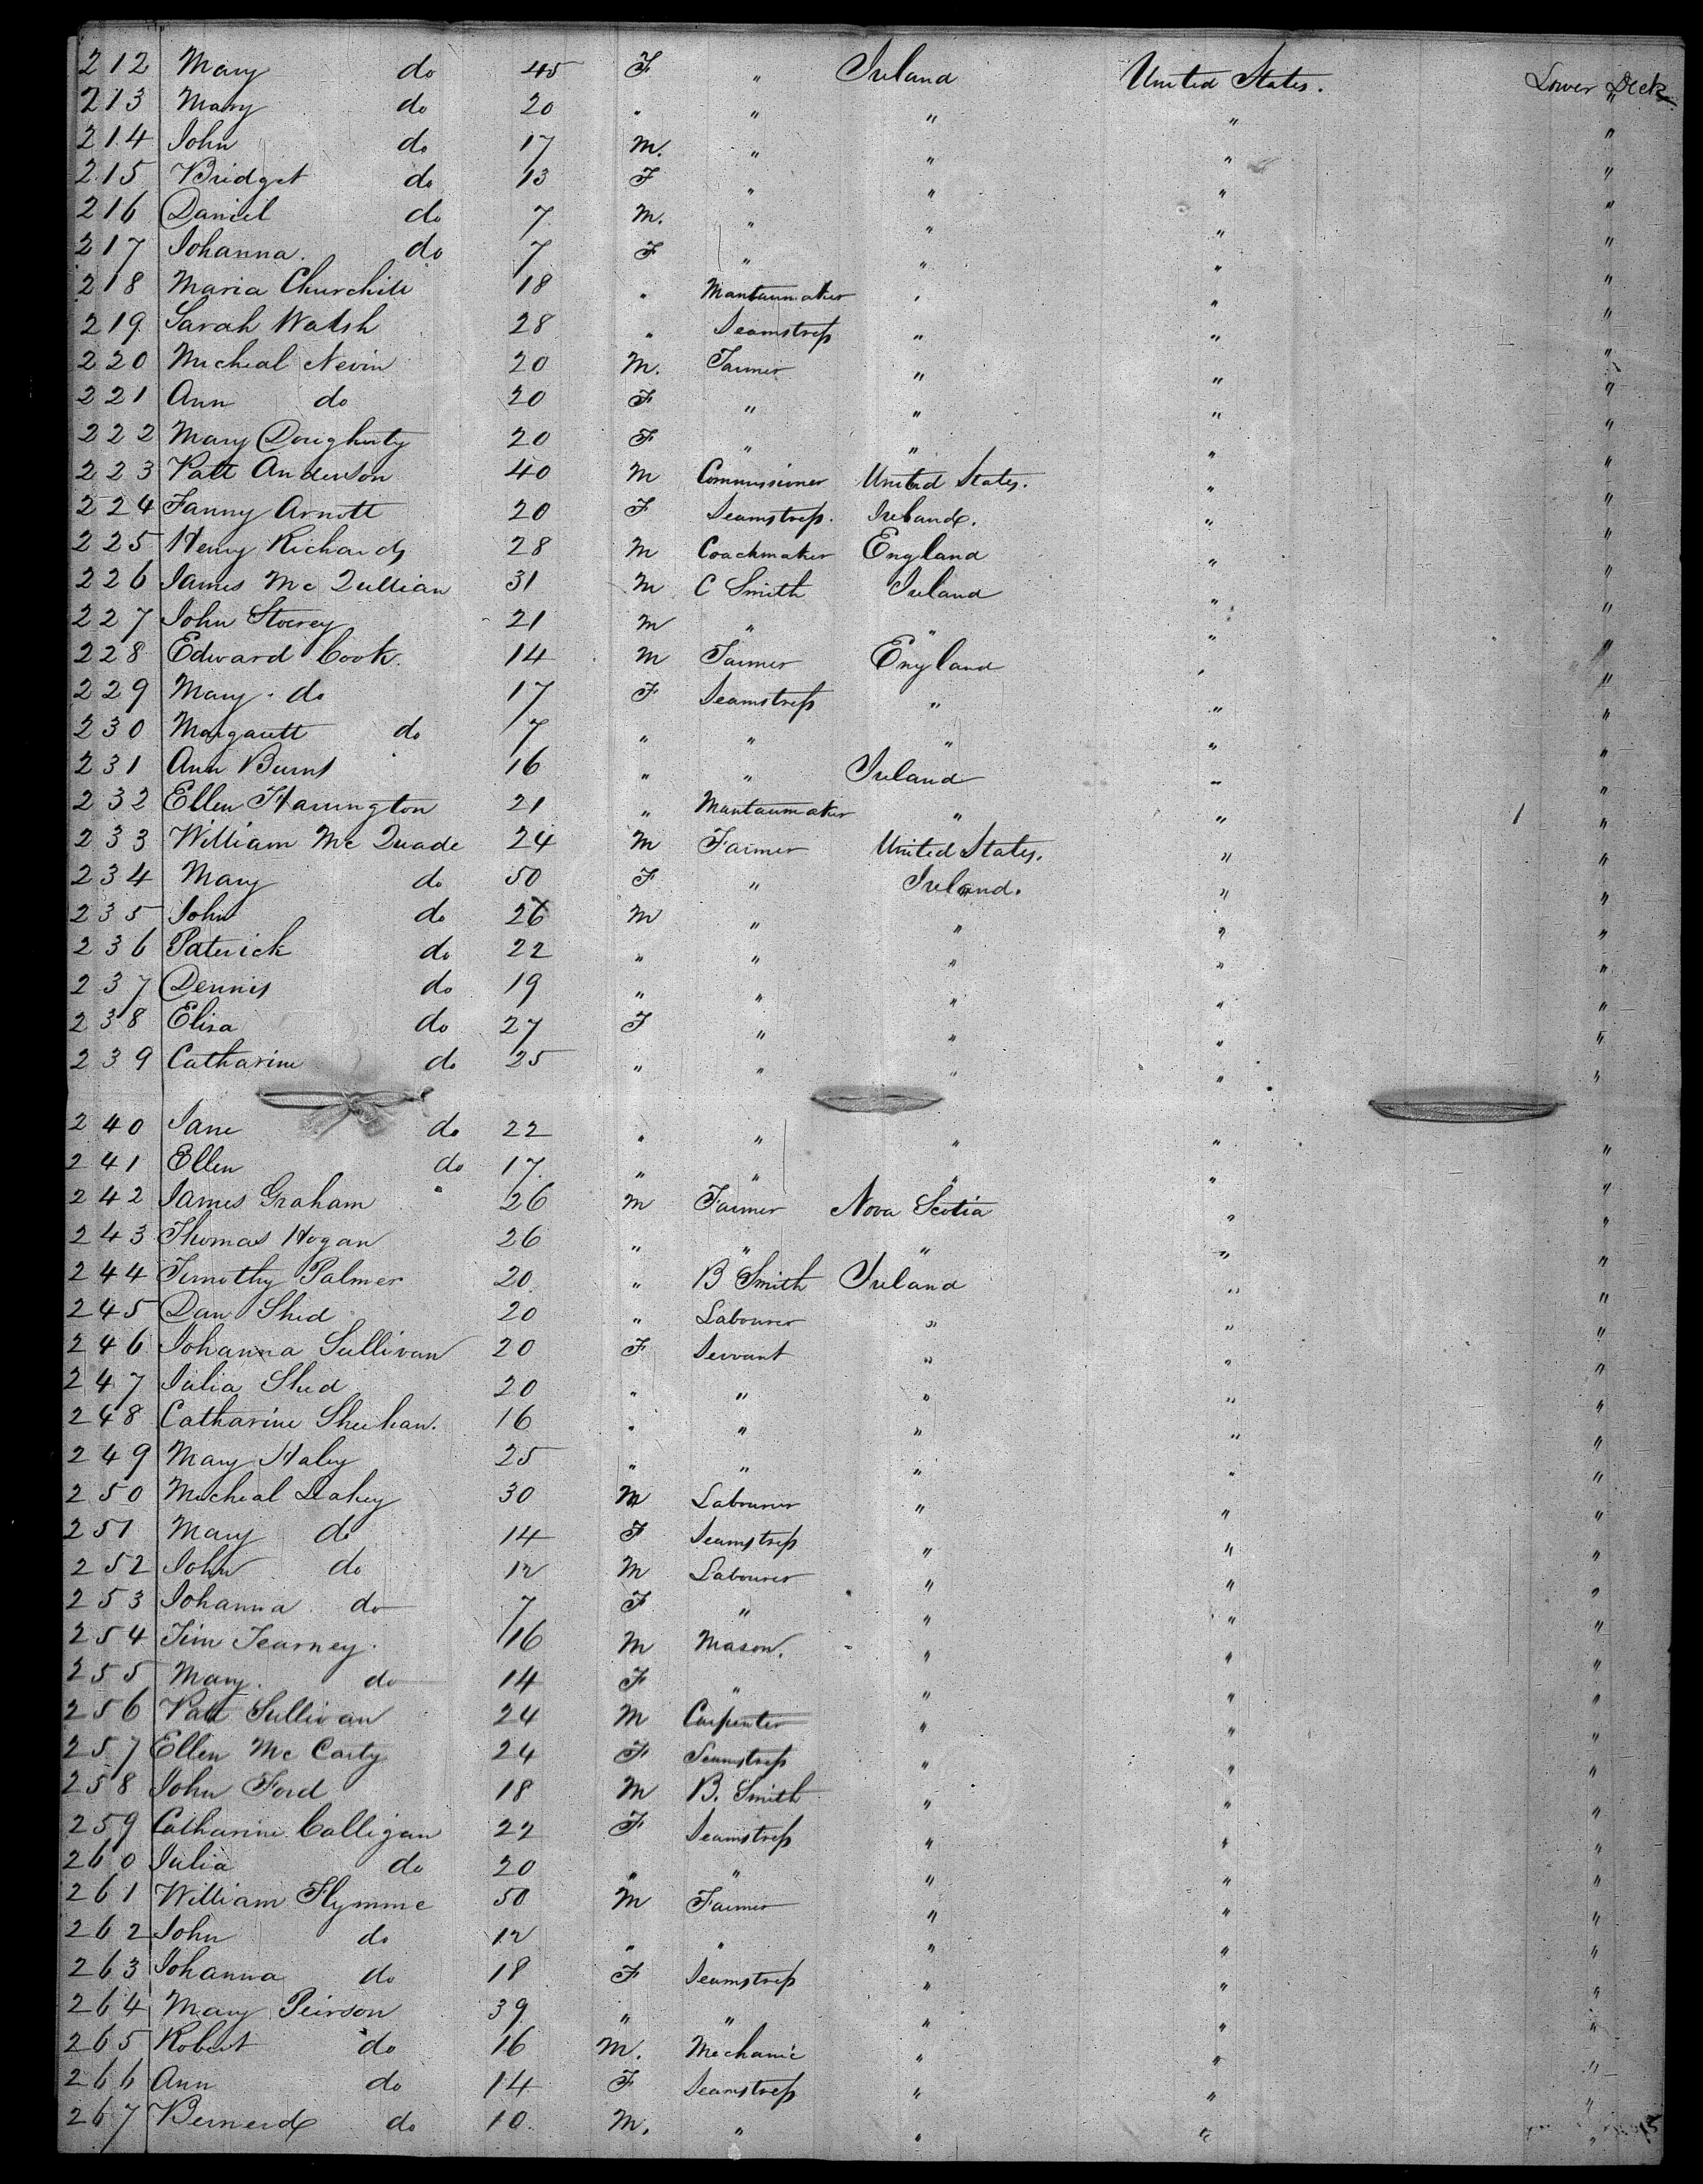 212 Mary do 45 F " Ireland United States. Lower Deck
213 Mary do 20 " " " " "
214 John do 17 M. " " " "
215 Bridget do 13 F " " " "
216 Daniel do 7 M. " " " "
217 Johanna. do 7 F " " " "
218 Maria Churchill 18 " Mantuamaker " " "
219 Sarah Walsh 28 " Seamstress " " "
220 Micheal Nevin 20 M. Farmer " " "
221 Ann do 20 F " " " "
222 Mary Dougherty 20 F " " " "
223 Patt Anderson 40 M Commissioner United States. " "
224 Fanny Arnott 20 F Seamstress. Ireland. " "
225 Henry Richards 28 M Coachmaker England " "
226 James Mc Quillian 31 M C Smith Ireland " "
227 John Storey 21 M " " " "
228 Edward Cook. 14 M Farmer England " "
229 Mary do 17 F Seamstress " " "
230 Margarett do 7 " " " " "
231 Ann Burns 16 " " Ireland " "
232 Ellen Harrington 21 " Mantuamaker " " "
233 William Mc Quade 24 M Farmer United States. " "
234 Mary do 50 F " Ireland. " "
235 John do 26 M " " " "
236 Patrick do 22 " " " " "
237 Dennis do 19 " " " " "
238 Eliza do 27 F " " " "
239 Catharine do 25 " " " " "
240 Jane do 22 " " " " "
241 Ellen do 17 " " " " "
242 James Graham 26 M Farmer Nova Scotia " "
243 Thomas Hogan 26 " " " " "
244 Timothy Palmer 20 " B Smith Ireland " "
245 Dan Shed 20 " Labourer " " "
246 Johanna Sullivan 20 F Servant " " "
247 Julia Shed 20 " " " " "
248 Catharine Sheehan. 16 " " " " "
249 Mary Haley 25 " " " " "
250 Micheal Leahey 30 M Labourer " " "
251 Mary do 14 F Seamstress " " "
252 John do 12 M Labourer " " "
253 Johanna do 7 F " " " "
254 Tim Tearney 16 M Mason. " " "
255 Mary. do 14 F " " " "
256 Patt Sullivan 24 M Carpenter " " "
257 Ellen Mc Carty 24 F Seamstress " " "
258 John Ford 18 M B. Smith " " "
259 Catharine Calligan 22 F Seamstress " " "
260 Julia do 20 " " " " "
261 William Flymme 50 M Farmer " " "
262 John do 12 " " " " "
263 Johanna do 18 F Seamstress " " "
264 Mary Peirson 39 " " " " "
265 Robert do 16 M. Mechanic " " "
266 Ann do 14 F Seamstress " " "
267 Bernerd do 10 M. " " " "